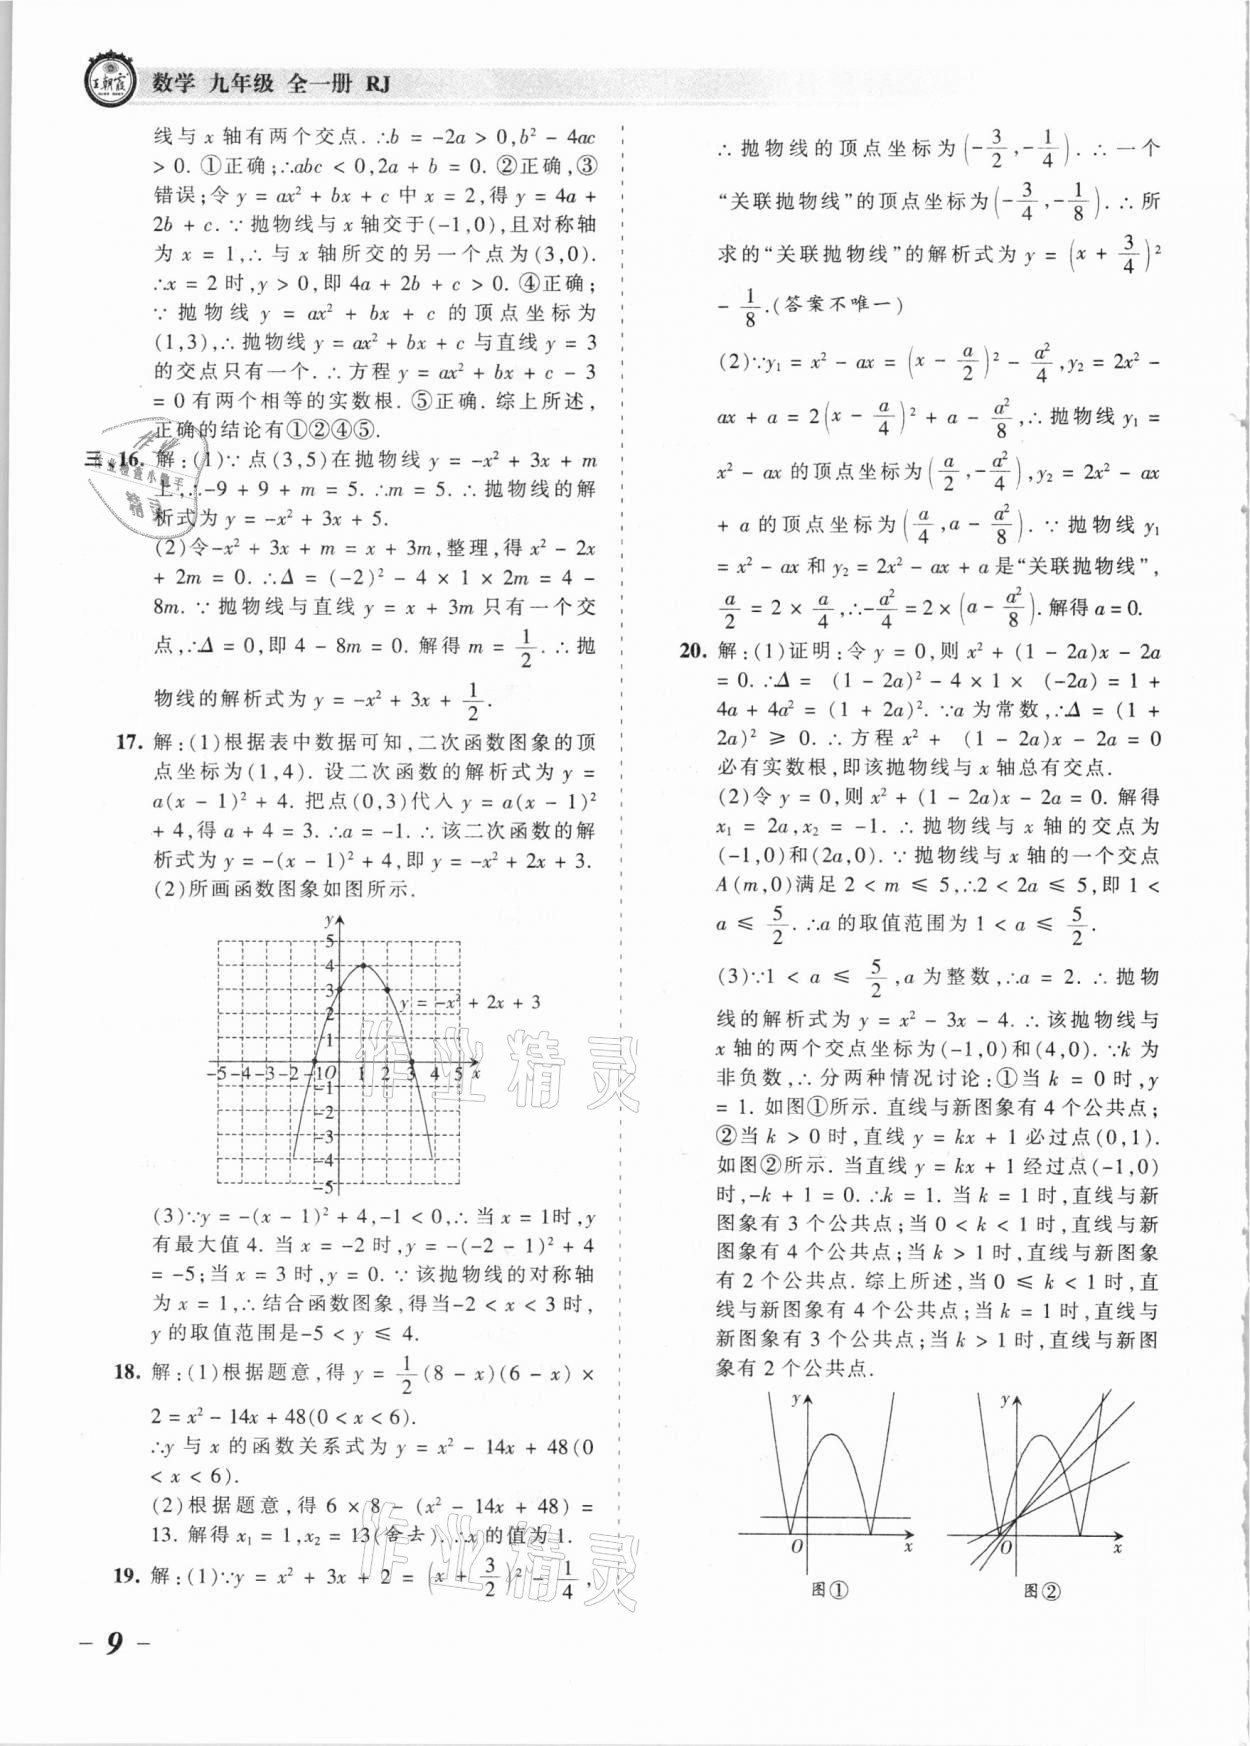 王朝霞 数学 九年级 全一册 RJ
线与 x 轴有两个交点. ∴b = -2a > 0,b² - 4ac
> 0. ①正确;∴abc < 0,2a + b = 0. ②正确,③
错误;令 y = ax² + bx + c 中 x = 2,得 y = 4a +
2b + c. ∵ 抛物线与 x 轴交于(-1,0),且对称轴
为 x = 1,∴ 与 x 轴所交的另一个点为(3,0).
∴x = 2 时,y > 0,即 4a + 2b + c > 0. ④正确;
∵ 抛物线 y = ax² + bx + c 的顶点坐标为
(1,3),∴ 抛物线 y = ax² + bx + c 与直线 y = 3
的交点只有一个. ∴ 方程 y = ax² + bx + c - 3
= 0 有两个相等的实数根. ⑤正确. 综上所述,
正确的结论有①②④⑤.
三、16. 解:(1)∵ 点(3,5)在抛物线 y = -x² + 3x + m
上,∴-9 + 9 + m = 5. ∴m = 5. ∴ 抛物线的解
析式为 y = -x² + 3x + 5.
(2)令-x² + 3x + m = x + 3m,整理,得 x² - 2x
+ 2m = 0. ∴Δ = (-2)² - 4 × 1 × 2m = 4 -
8m. ∵ 抛物线与直线 y = x + 3m 只有一个交
点,∴Δ = 0,即 4 - 8m = 0. 解得 m = 1/2. ∴ 抛
物线的解析式为 y = -x² + 3x + 1/2.
17. 解:(1)根据表中数据可知,二次函数图象的顶
点坐标为(1,4). 设二次函数的解析式为 y =
a(x - 1)² + 4. 把点(0,3)代入 y = a(x - 1)²
+ 4,得 a + 4 = 3. ∴a = -1. ∴ 该二次函数的解
析式为 y = -(x - 1)² + 4,即 y = -x² + 2x + 3.
(2)所画函数图象如图所示.
y
5
4
3
2
1
y = -x² + 2x + 3
-5 -4 -3 -2 -1 O 1 2 3 4 5 x
-1
-2
-3
-4
-5
(3)∵y = -(x - 1)² + 4,-1 < 0,∴ 当 x = 1时,y
有最大值 4. 当 x = -2 时,y = -(-2 - 1)² + 4
= -5;当 x = 3 时,y = 0. ∵ 该抛物线的对称轴
为 x = 1,∴ 结合函数图象,得当-2 < x < 3 时,
y 的取值范围是-5 < y ≤ 4.
18. 解:(1)根据题意,得 y = 1/2 (8 - x)(6 - x) ×
2 = x² - 14x + 48(0 < x < 6).
∴y 与 x 的函数关系式为 y = x² - 14x + 48(0
< x < 6).
(2)根据题意,得 6 × 8 - (x² - 14x + 48) =
13. 解得 x₁ = 1,x₂ = 13(舍去). ∴x 的值为 1.
19. 解:(1)∵y = x² + 3x + 2 = (x + 3/2)² - 1/4,
- 9 -
∴ 抛物线的顶点坐标为(-3/2,-1/4). ∴ 一个
“关联抛物线”的顶点坐标为(-3/4,-1/8). ∴ 所
求的“关联抛物线”的解析式为 y = (x + 3/4)²
- 1/8.(答案不唯一)
(2)∵y₁ = x² - ax = (x - a/2)² - a²/4,y₂ = 2x² -
ax + a = 2(x - a/4)² + a - a²/8,∴ 抛物线 y₁ =
x² - ax 的顶点坐标为(a/2,-a²/4),y₂ = 2x² - ax
+ a 的顶点坐标为(a/4,a - a²/8). ∵ 抛物线 y₁
= x² - ax 和 y₂ = 2x² - ax + a 是“关联抛物线”,
a/2 = 2 × a/4,∴-a²/4 = 2 × (a - a²/8). 解得 a = 0.
20. 解:(1)证明:令 y = 0,则 x² + (1 - 2a)x - 2a
= 0. ∴Δ = (1 - 2a)² - 4 × 1 × (-2a) = 1 +
4a + 4a² = (1 + 2a)². ∵a 为常数,∴Δ = (1 +
2a)² ≥ 0. ∴ 方程 x² + (1 - 2a)x - 2a = 0
必有实数根,即该抛物线与 x 轴总有交点.
(2)令 y = 0,则 x² + (1 - 2a)x - 2a = 0. 解得
x₁ = 2a,x₂ = -1. ∴ 抛物线与 x 轴的交点为
(-1,0)和(2a,0). ∵ 抛物线与 x 轴的一个交点
A(m,0)满足 2 < m ≤ 5,∴2 < 2a ≤ 5,即 1 <
a ≤ 5/2. ∴a 的取值范围为 1 < a ≤ 5/2.
(3)∵1 < a ≤ 5/2,a 为整数,∴a = 2. ∴ 抛物
线的解析式为 y = x² - 3x - 4. ∴ 该抛物线与
x 轴的两个交点坐标为(-1,0)和(4,0). ∵k 为
非负数,∴ 分两种情况讨论:①当 k = 0 时,y
= 1. 如图①所示. 直线与新图象有 4 个公共点;
②当 k > 0 时,直线 y = kx + 1 必过点(0,1).
如图②所示. 当直线 y = kx + 1 经过点(-1,0)
时,-k + 1 = 0. ∴k = 1. 当 k = 1 时,直线与新
图象有 3 个公共点;当 0 < k < 1 时,直线与新
图象有 4 个公共点;当 k > 1 时,直线与新图象
有 2 个公共点. 综上所述,当 0 ≤ k < 1 时,直
线与新图象有 4 个公共点;当 k = 1 时,直线与
新图象有 3 个公共点;当 k > 1 时,直线与新图
象有 2 个公共点.
y O x
图①
y O x
图②
作业精灵
作业精灵
作业
作业检查小助手
精灵